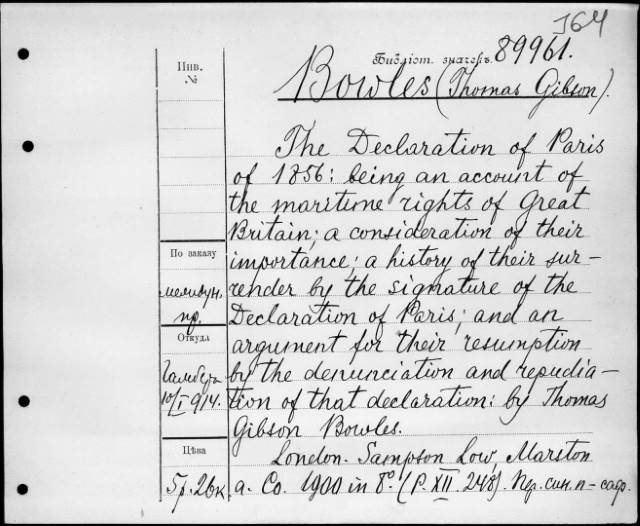 I64
Библіот. значекъ. 89961.
Инв.
№
Bowles (Thomas Gibson).
The Declaration of Paris
of 1856: being an account of
the maritime rights of Great
Britain; a consideration of their
importance; a history of their sur-
render by the signature of the
Declaration of Paris; and an
argument for their resumption
by the denunciation and repudia-
tion of that declaration: by Thomas
Gibson Bowles.
London. Sampson Low, Marston
a. Co. 1900 in 8º. (P. XII. 248). Пр. син. п-
По заказу
междун.
пр.
Откуда
10/I 914.
Цѣна
5р. 26к